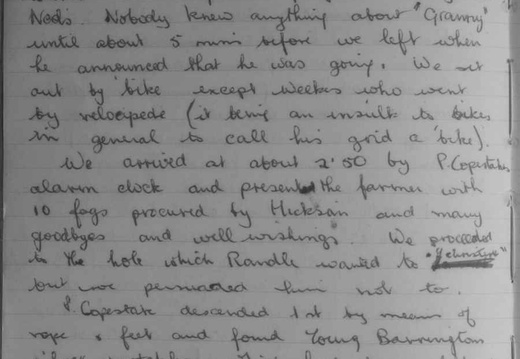 Ned's. Nobody knew anything about "Granny"
until about 5 mins before we left when
he announced that he was going. We set
out by bike except Weekes who went
by velocipede (it being an insult to bikes
in general to call his grid a 'bike').
We arrived at about 2.50 by P. Copestakes
alarm clock and present the farmer with
10 fags procured by Hickson and many
goodbyes and well wishings. We proceeded
to the hole which Randle wanted to
but we persuaded him not to.
P. Copestake descended 1st by means of
rope & feet and found Young Barrington